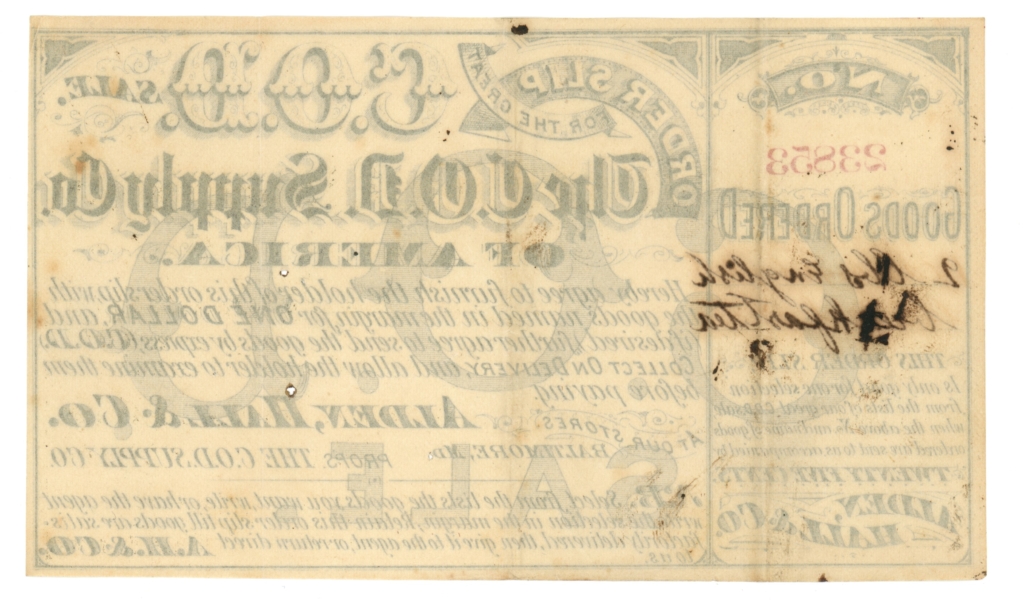 NO.
23853
GOODS ORDERED
2 lbs English
Breakfast Tea
THIS ORDER SLIP
Is only good for one selection
from the lists of our great C.O.D. sale
when the above No. and name of goods
ordered are sent to us accompanied by
TWENTY FIVE CENTS.
ALDEN,
HALL & CO.
ORDER SLIP
FOR THE GREAT
C.O.D. SALE.
The C.O.D. Supply Co.
OF AMERICA.
Hereby agree to furnish the holder of this order slip with,
the goods named in the margin, for ONE DOLLAR, and
if desired, further agree to send the goods by express (C.O.D.)
COLLECT ON DELIVERY, and allow the holder to examine them
before paying.
ALDEN, HALL & CO.
AT OUR STORES.
BALTIMORE, MD. PROPS. THE C.O.D. SUPPLY CO.
C.O.D.
SALE
P.S. Select from the lists the goods you want, write, or have the agent
write the selection in the margin, Retain this order slip till goods are satis-
factorily delivered, then give it to the agent, or return direct
to us.
A.H. & CO.